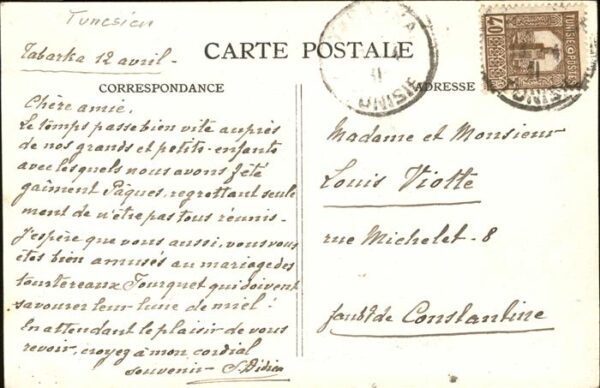 Tunesien
Tabarka 12 avril -
CARTE POSTALE
CORRESPONDANCE
Chère amie,
Le temps passe bien vite auprès
de nos grands et petits-enfants
avec lesquels nous avons fêté
gaiment Pâques, regrettant seule
ment de n'être pas tous réunis -
J'espère que vous aussi, vous vous
êtes bien amusés au mariage des
tourtereaux Fourquet qui doivent
savourer leur lune de miel !
En attendant le plaisir de vous
revoir, croyez à mon cordial
souvenir - S. Didier
ADRESSE
Madame et Monsieur
Louis Viotte
rue Michelet - 8
faubg de Constantine
40
TUNISIE POSTES
TUNISIE